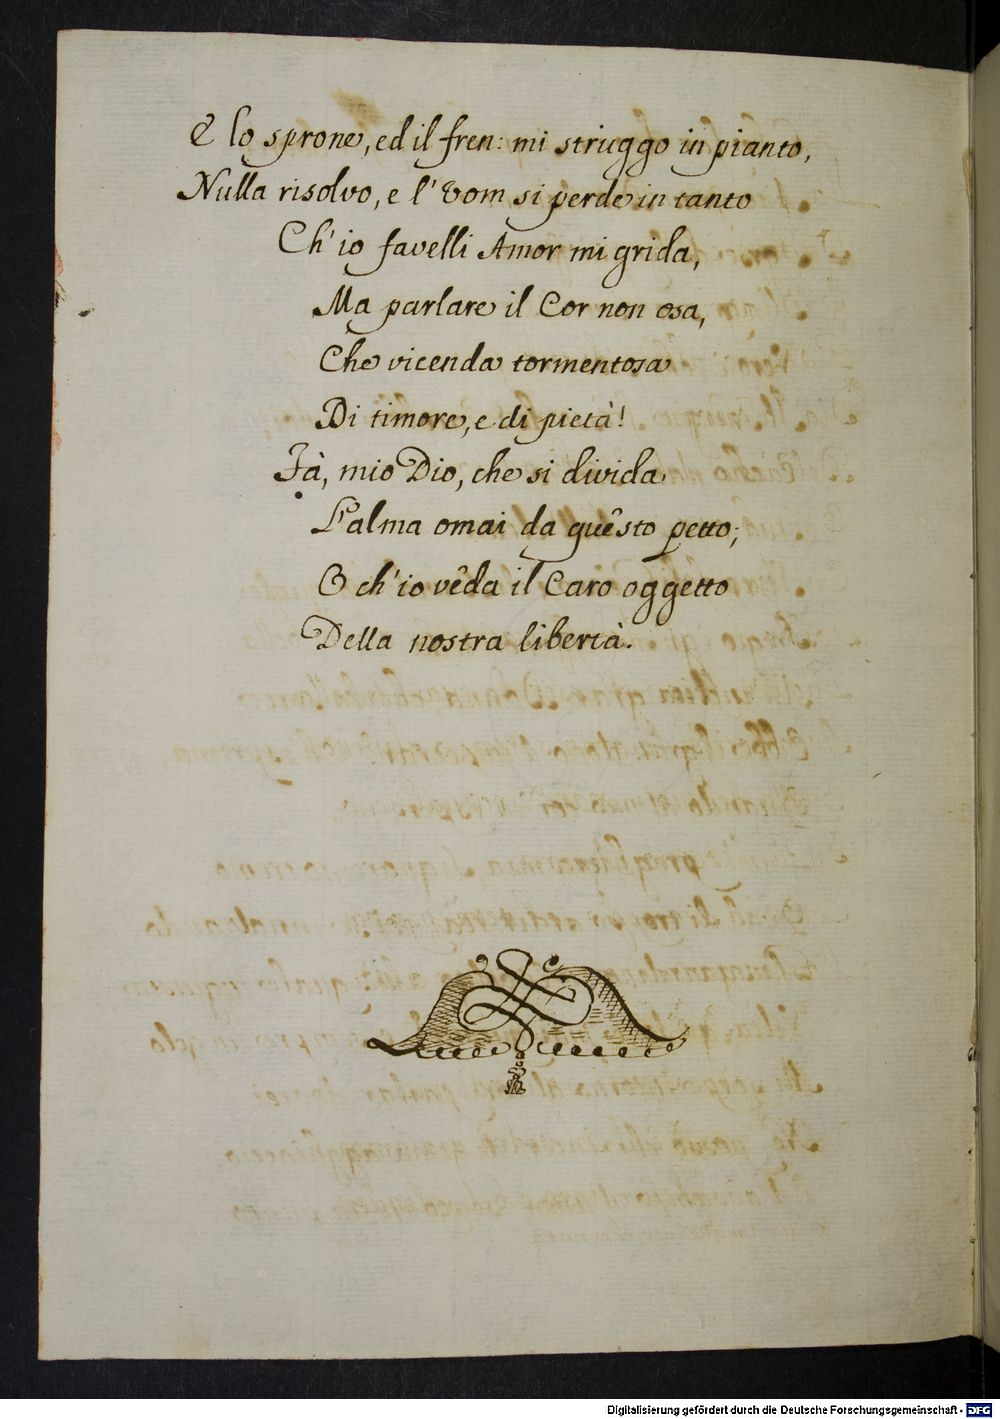 E lo sprone, ed il fren: mi struggo in pianto,
Nulla risolvo, e l' Vom si perde in tanto
Ch' io favelli Amor mi grida,
Ma parlare il Cor non osa,
Che vicenda tormentosa
Di timore, e di pietà!
Fà, mio Dio, che si divida
L'alma omai da quêsto petto;
O ch' io vêda il Caro oggetto
Della nostra libertà.
Digitalisierung gefördert durch die Deutsche Forschungsgemeinschaft - DFG